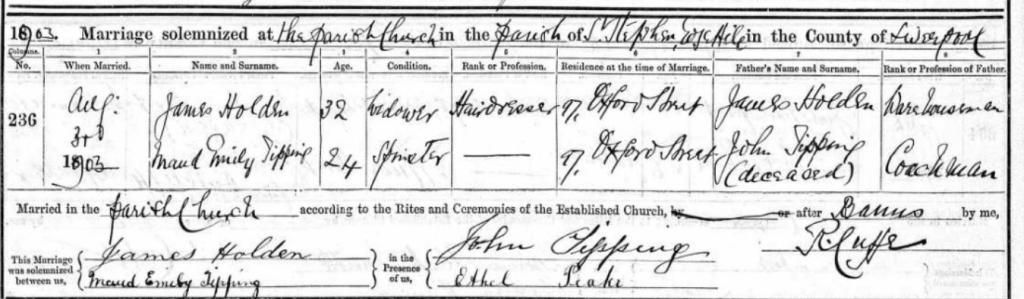 1903. Marriage solemnized at the Parish Church in the Parish of St. Stephen, Edge Hill in the County of Liverpool
Columns. 1 2 3 4 5 6 7 8
No. When Married. Name and Surname. Age. Condition. Rank or Profession. Residence at the time of Marriage. Father's Name and Surname. Rank or Profession of Father.
236 Aug: 3rd 1903 James Holden 32 Widower Hairdresser 97, Oxford Street James Holden Warehouseman
Maud Emily Tipping 24 Spinster — 97, Oxford Street John Tipping (deceased) Coachman
Married in the Parish Church according to the Rites and Ceremonies of the Established Church, by or after Banns by me,
R Cuffe
This Marriage was solemnized between us, James Holden in the Presence of us, John Tipping
Maud Emily Tipping Ethel Peake